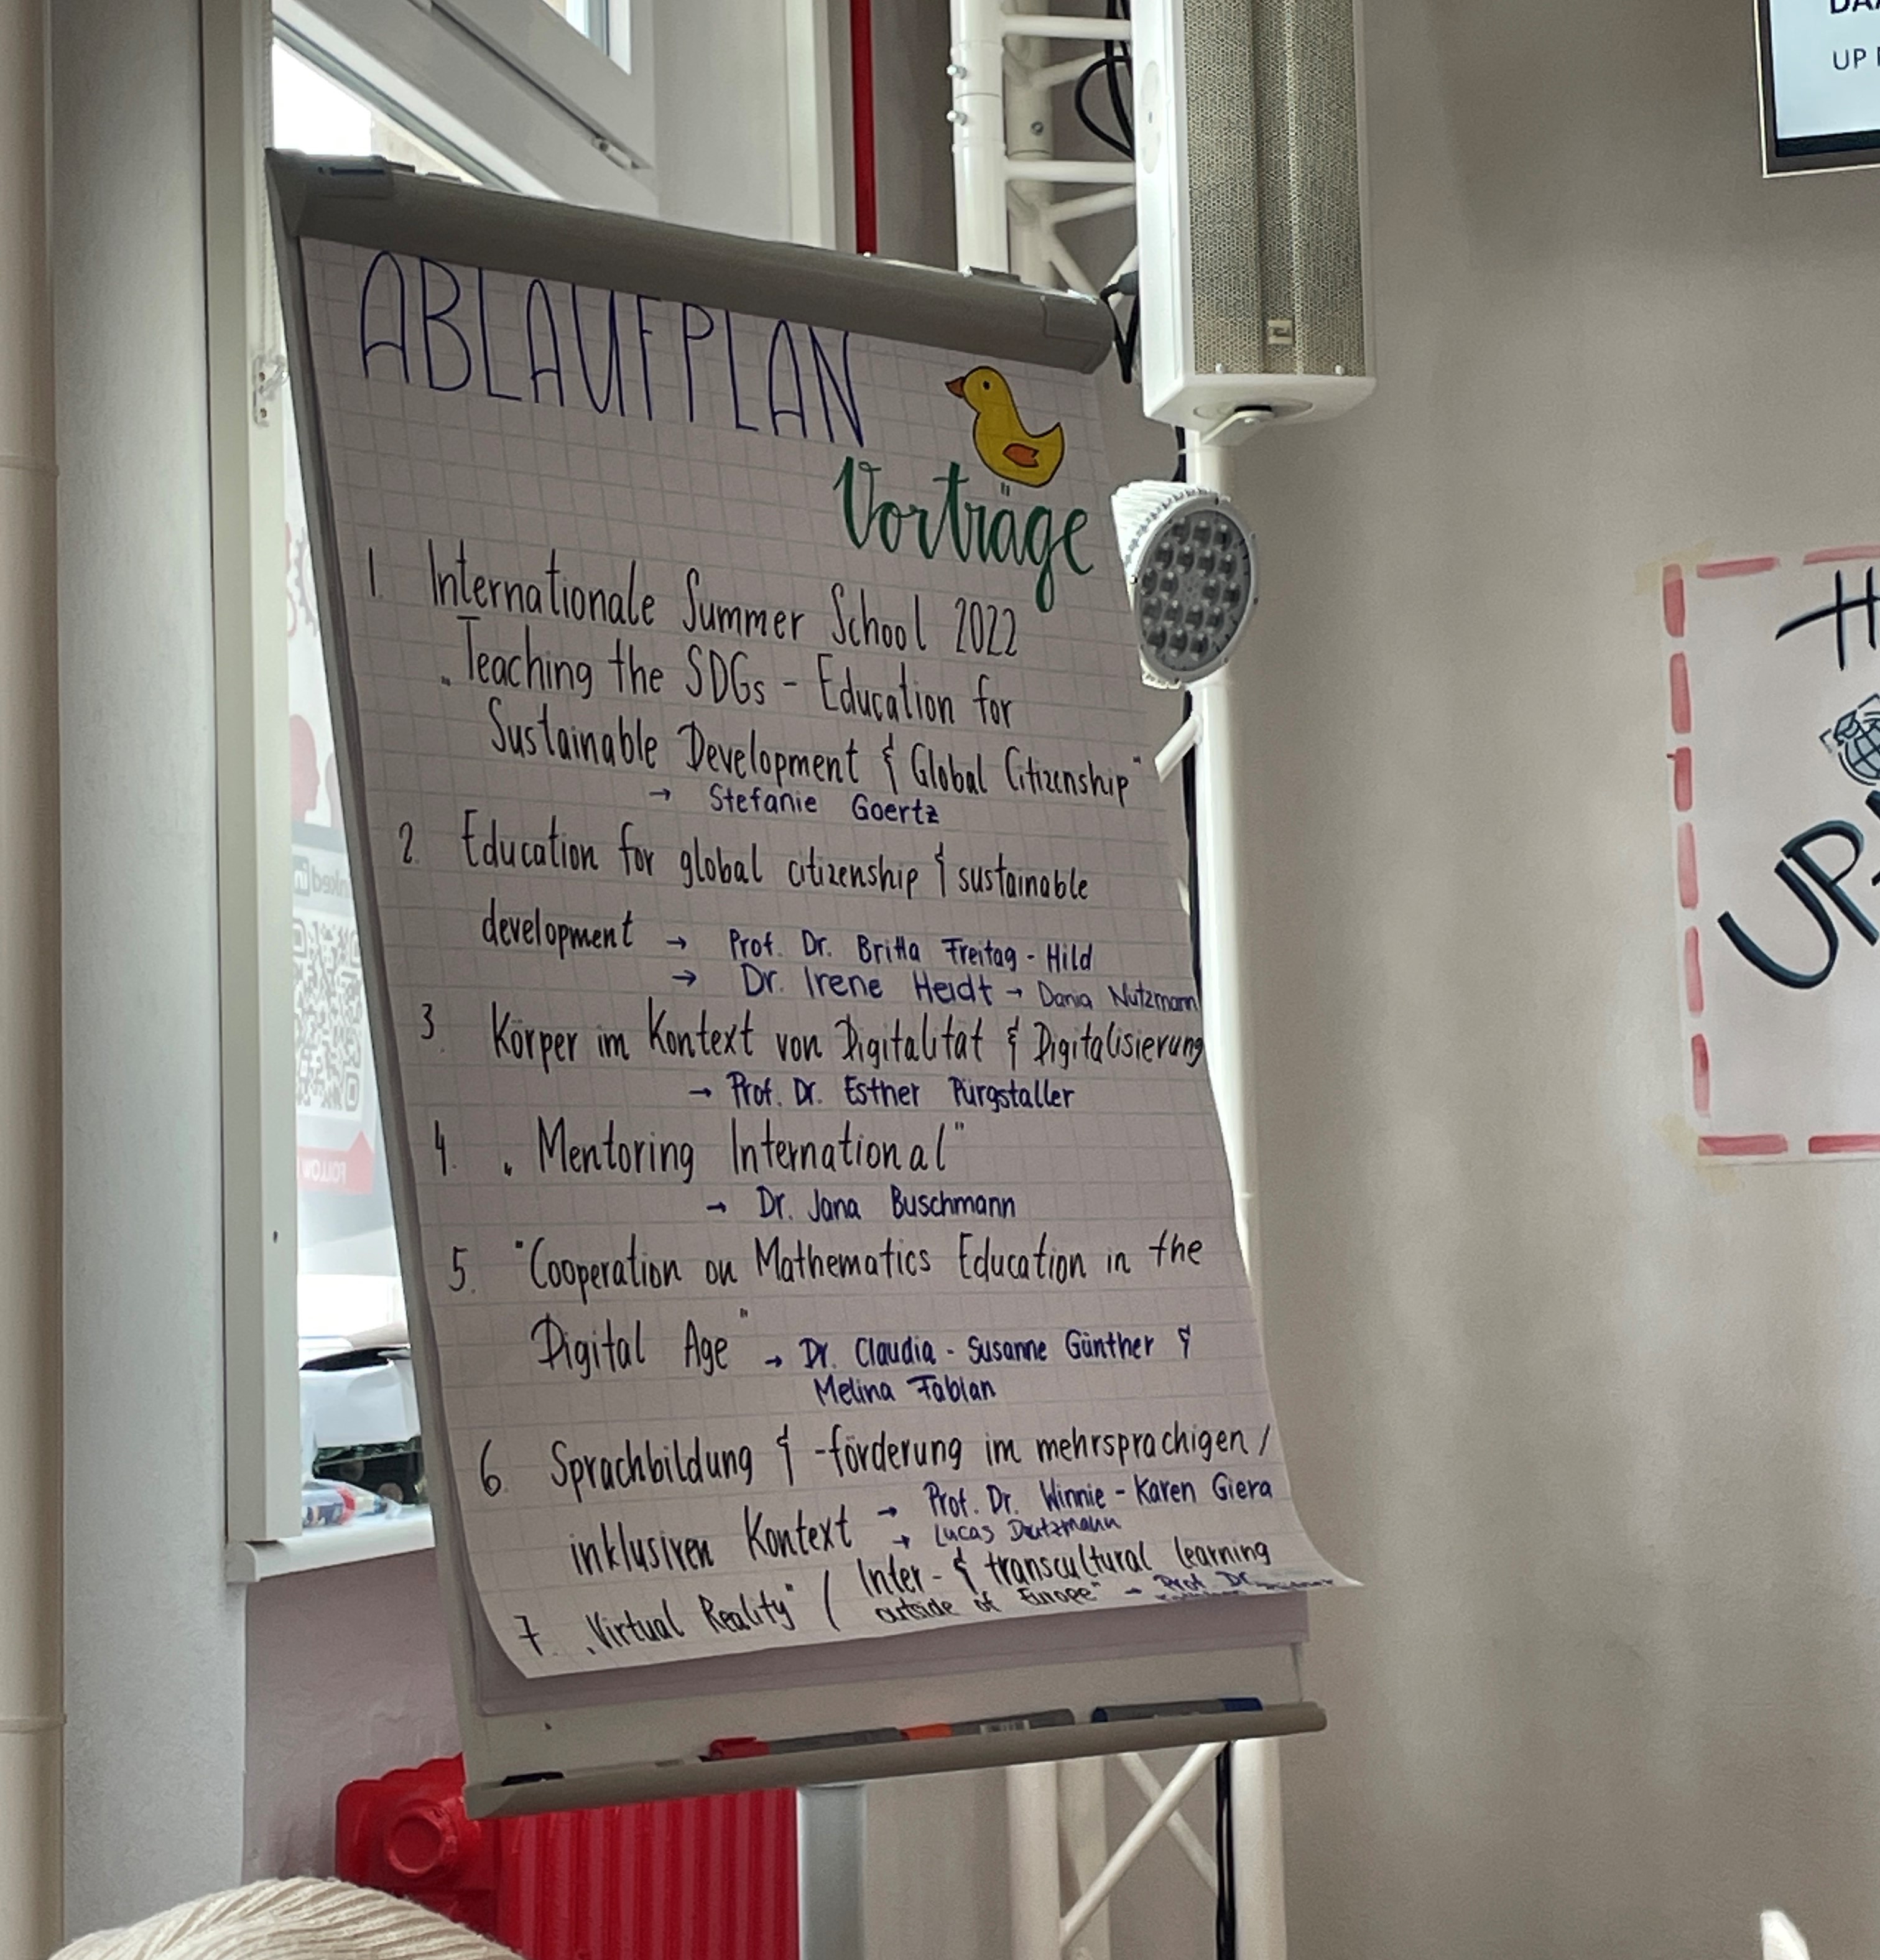 ABLAUFPLAN
Vorträge
1. Internationale Summer School 2022
„Teaching the SDGs - Education for
Sustainable Development & Global Citizenship"
→ Stefanie Goertz
2. Education for global citizenship & sustainable
development → Prof. Dr. Britta Freitag-Hild
→ Dr. Irene Heidt → Dania Nutzmann
3. Körper im Kontext von Digitalität & Digitalisierung
→ Prof. Dr. Esther Pürgstaller
4. „Mentoring International"
→ Dr. Jana Buschmann
5. "Cooperation on Mathematics Education in the
Digital Age" → Dr. Claudia-Susanne Günther &
Melina Fabian
6. Sprachbildung & -förderung im mehrsprachigen /
inklusiven Kontext → Prof. Dr. Winnie-Karen Giera
→ Lucas Deutzmann
7. „Virtual Reality" / Inter- & transcultural learning
outside of Europe" → Prof. Dr.
UP
FOLLOW